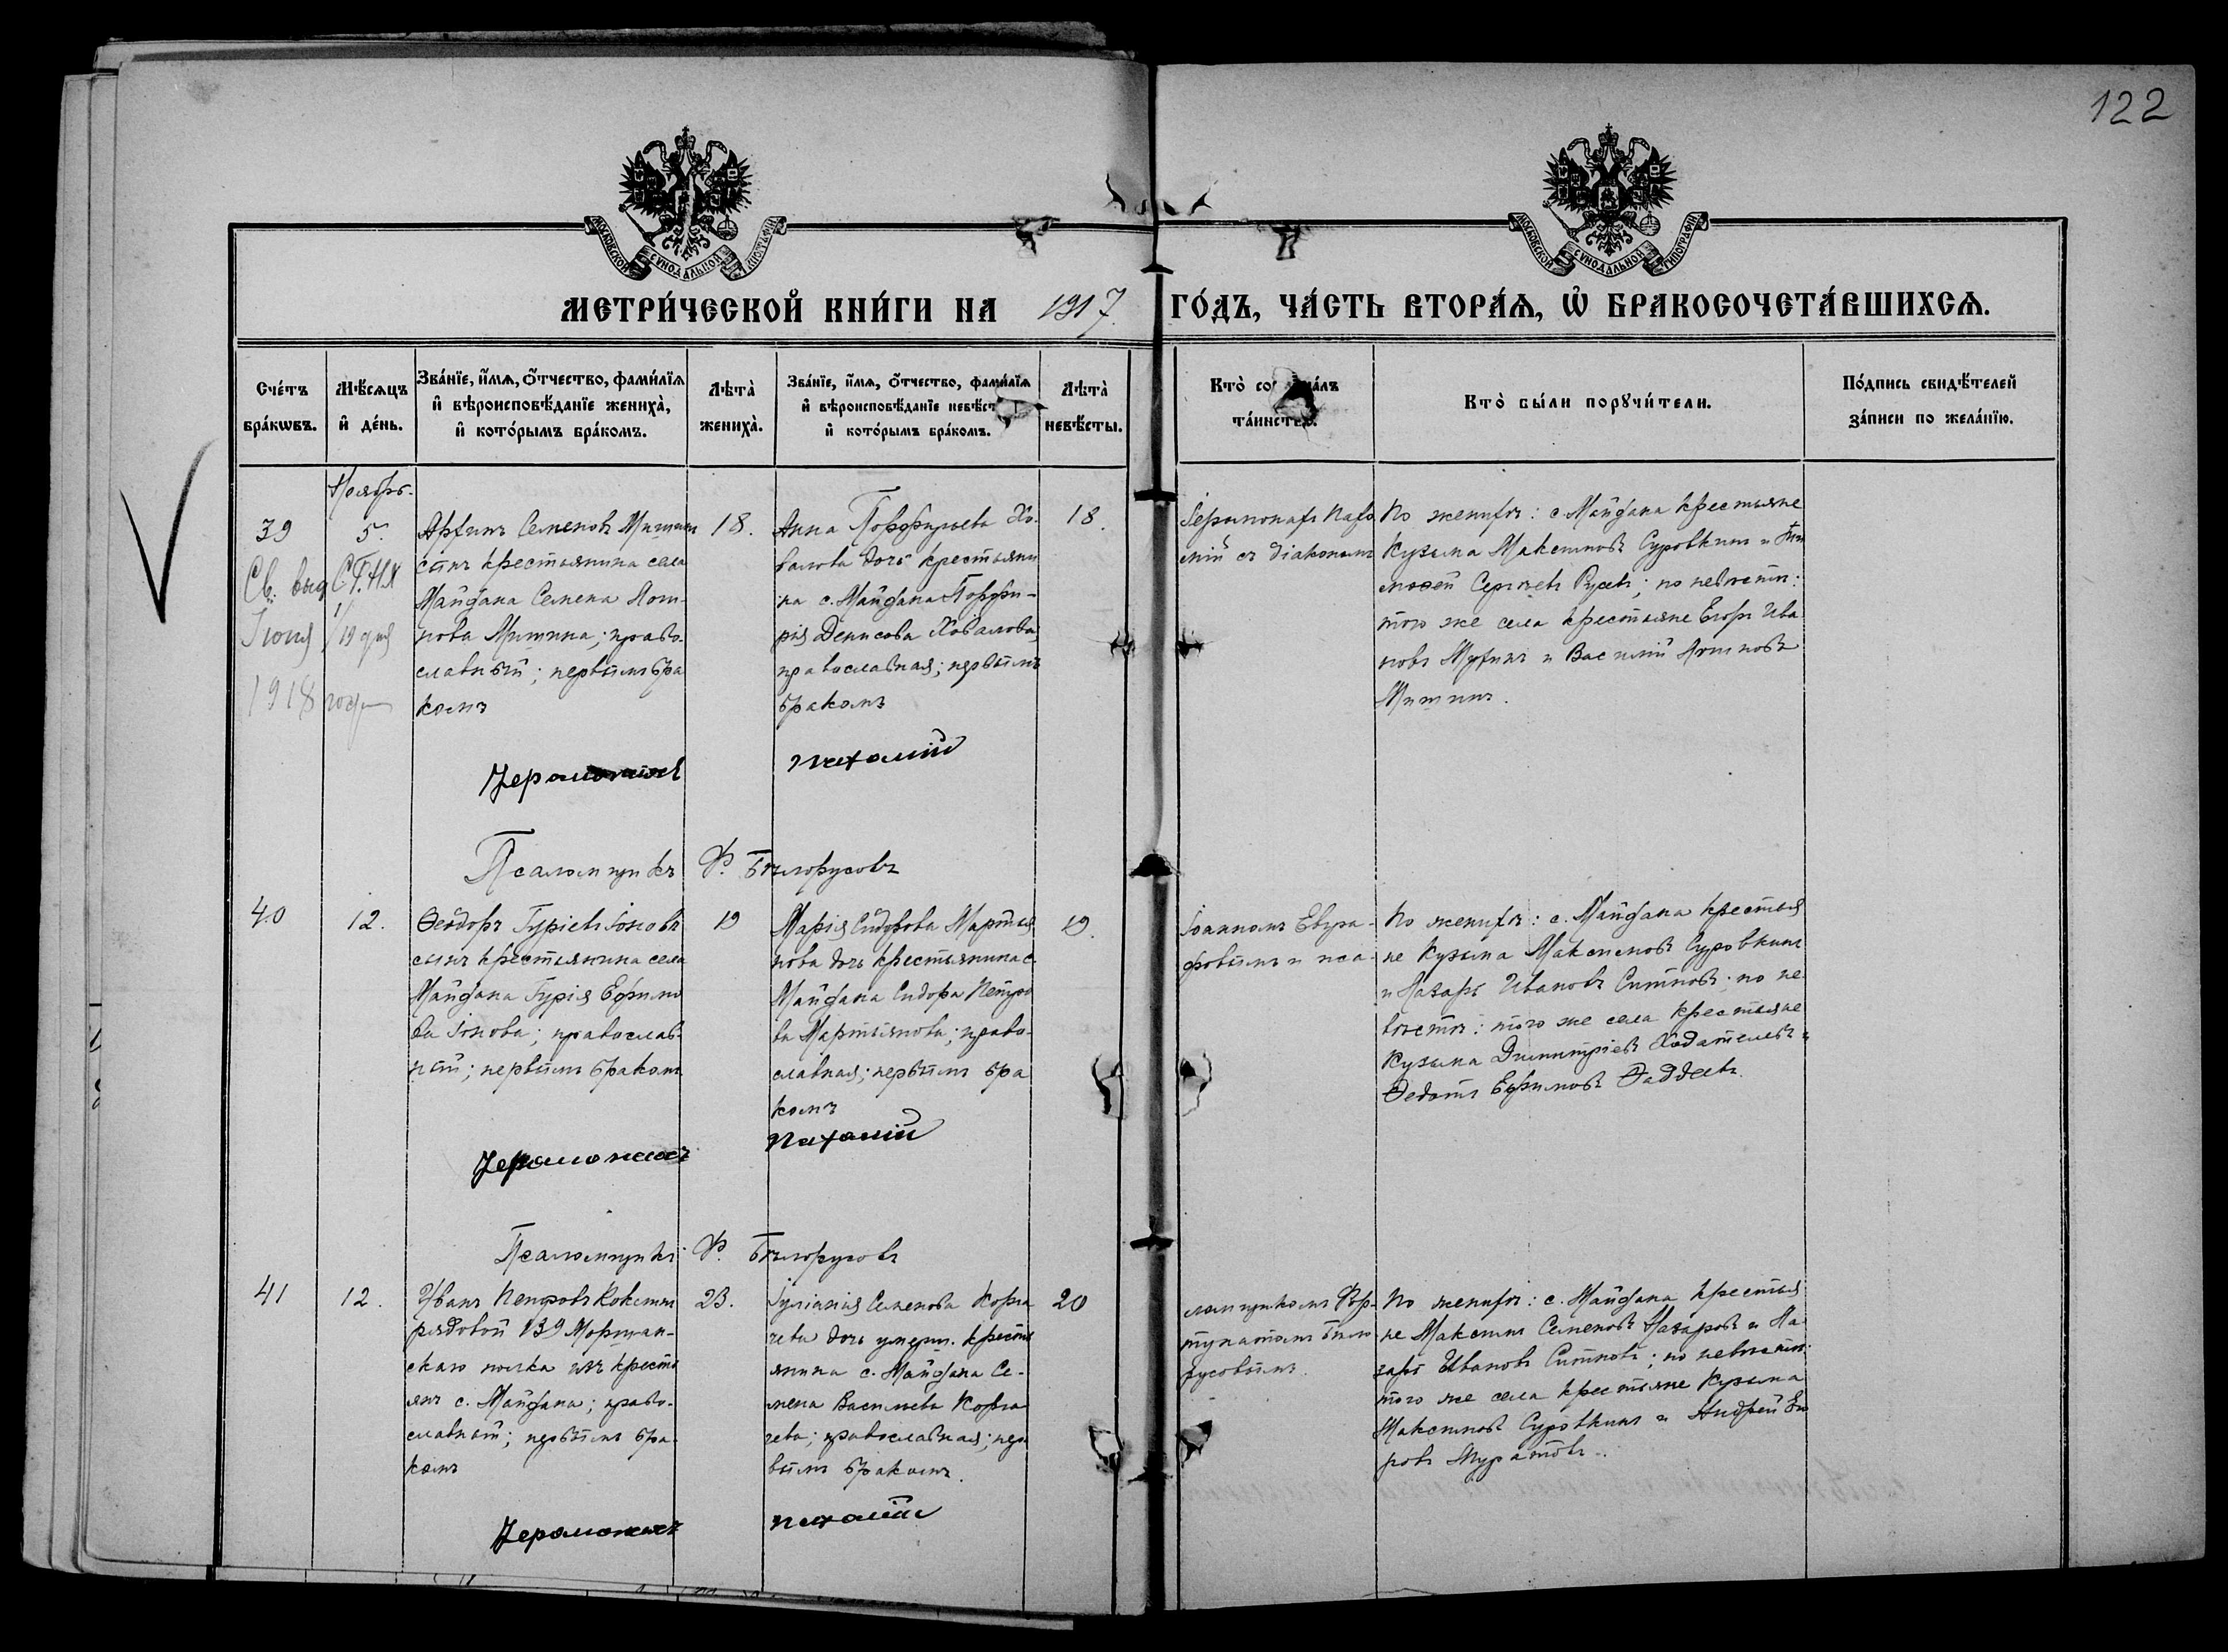 122
МОСКОВСКОЙ СѴНОДАЛЬНОЙ ТИПОГРАФІИ
МОСКОВСКОЙ СѴНОДАЛЬНОЙ ТИПОГРАФІИ
МЕТРИ́ЧЕСКОЙ КНИ́ГИ НА 1917. ГО́ДЪ, ЧА́СТЬ ВТОРА́Ѧ, Ѽ БРАКОСОЧЕТА́ВШИХСѦ.
Сче́тъ бра́кѡвъ.
Мѣ́сѧцъ и҆ де́нь.
Зва́нїе, и҆́мѧ, ѻ҆́тчество, фами́лїѧ
и҆ вѣроисповѣ́данїе жениха̀,
и҆ кото́рымъ бра́комъ.
Лѣта̀ жениха̀.
Зва́нїе, и҆́мѧ, ѻ҆́тчество, фами́лїѧ
и҆ вѣроисповѣ́данїе
и҆ кото́рымъ бра́комъ.
Лѣта̀ невѣ́сты.
Кто̀
та́инство.
Кто̀ бы́ли порꙋчи́тели.
По́дпись свидѣ́телей
за́писи по жела́нїю.
Ноябрь.
39
5.
Св. выд.
Іюня 19 дня
1918 году
Семеновъ Митинъ
сынъ крестьянина села
Майдана Семена Логи-
нова Митина; право-
славный; первымъ бра
комъ
18.
Анна Порфирьева Хо-
валова дочь крестьяни
на с. Майдана Порфи-
рія Денисова Ховалова
православная; первымъ
бракомъ
18.
Іеромонахъ Пахо
мій съ діакономъ
По женихѣ: с. Майдана крестьяне
Кузьма Максимовъ Суровкинъ и Тим
офей Сергѣевъ; по невѣстѣ:
того же села крестьяне Егоръ Ива
новъ и Василій Логиновъ
Митинъ.
Іеромонахъ Пахомій
Псаломщикъ Ф. Бѣлорусовъ
40
12.
Ѳеодоръ Гуріевъ Іоновъ
сынъ крестьянина села
Майдана Гурія Ефимо
ва Іонова; православ-
ный; первымъ бракомъ
19
Марія Сидорова Мартья
нова дочь крестьянина с.
Майдана Сидора Петро
ва Мартьянова; право-
славная; первымъ бра
комъ
19.
Іоанномъ Евгра-
фовымъ и пса-
По женихѣ: с. Майдана крестья
не Кузьма Максимовъ Суровкинъ
и Назаръ Ивановъ Ситновъ; по не
вѣстѣ: того же села крестьяне
Кузьма Димитріевъ Ходателевъ и
Ѳедотъ Ефимовъ Ѳаддеевъ.
Іеромонахъ Пахомій
Псаломщикъ Ф. Бѣлорусовъ
41
12.
Иванъ Петровъ Кокстинъ
рядовой 139 Моршан-
скаго полка изъ кресть
янъ с. Майдана; право-
славный; первымъ бра-
комъ
23.
Іуліанія Семенова Корна
чева дочь умерш. кресть
янина с. Майдана Се-
мена Васильева Корна
чева; православная; пер
вымъ бракомъ.
20
ломщикомъ Фор-
тунатомъ Бѣло
русовымъ.
По женихѣ: с. Майдана крестья
не Максимъ Семеновъ Назаровъ и На
заръ Ивановъ Ситновъ; по невѣстѣ:
того же села крестьяне Кузьма
Максимовъ Суровкинъ и Андрей Его
ровъ Муратовъ.
Іеромонахъ Пахомій